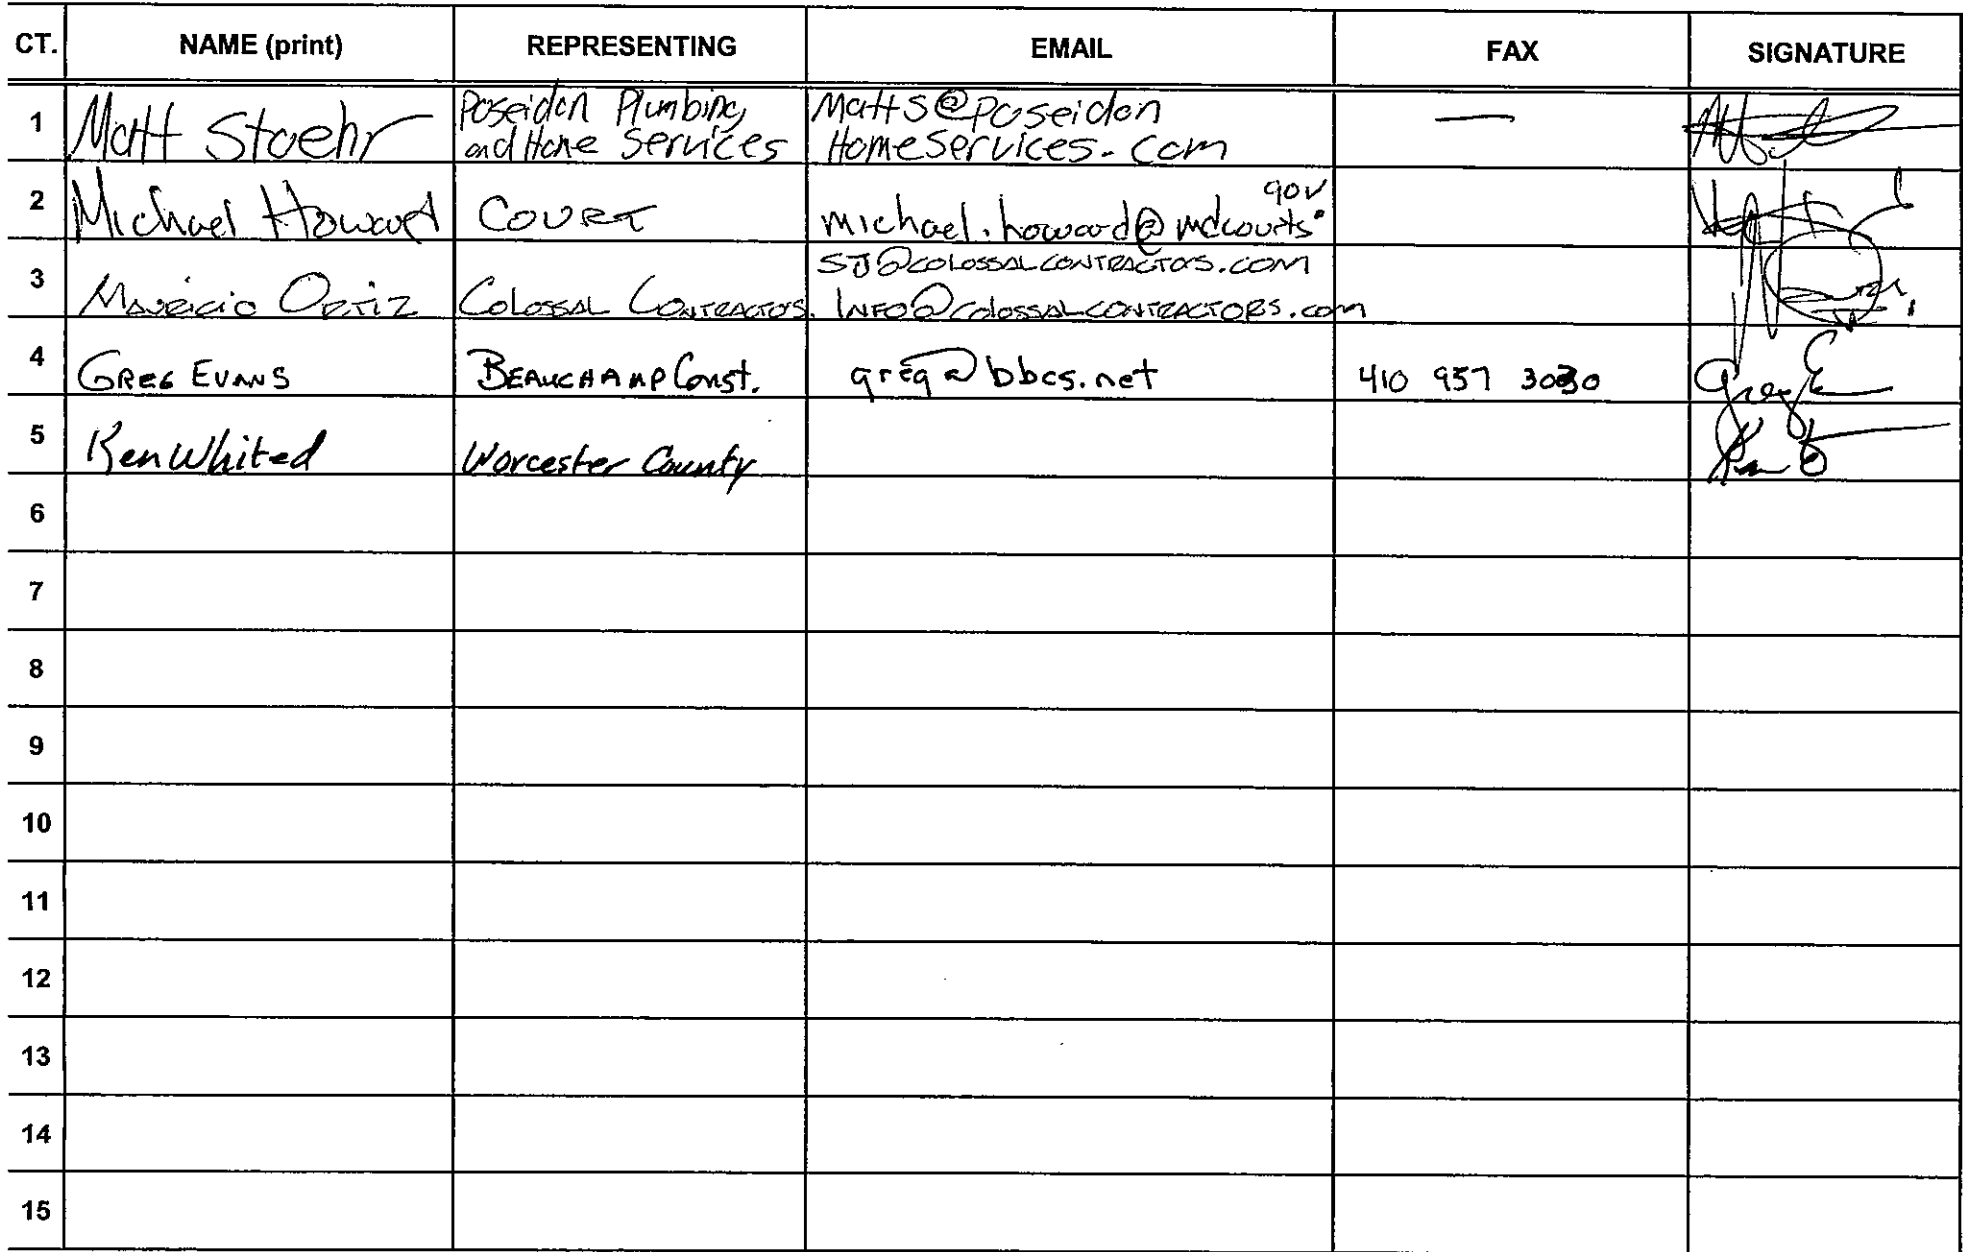 CT. NAME (print) REPRESENTING EMAIL FAX SIGNATURE
1 Matt Stoehr Poseidon Plumbing and Home Services MattS@poseidon HomeServices.com —
2 Michael Howard COURT michael.howard@mdcourts.gov
3 Mauricio Ortiz Colossal Contractors. SJ@COLOSSALCONTRACTORS.COM INFO@COLOSSALCONTRACTORS.com
4 GREG EVANS BEAUCHAMP Const. greg@bbcs.net 410 957 3030 Greg E
5 Ken Whited Worcester County
6
7
8
9
10
11
12
13
14
15